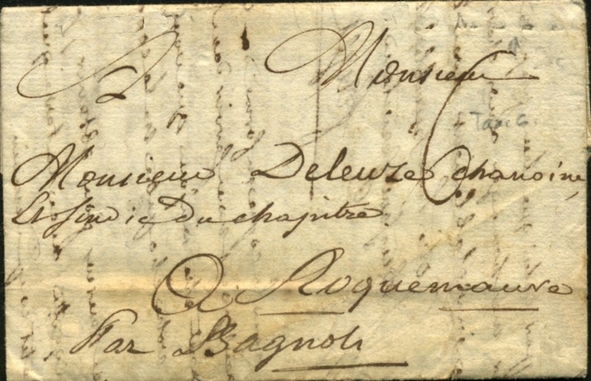 A Monsieur
Monsieur Deleuze Chanoine
Et sindic du chapitre
A Roquemaure
Par Bagnols